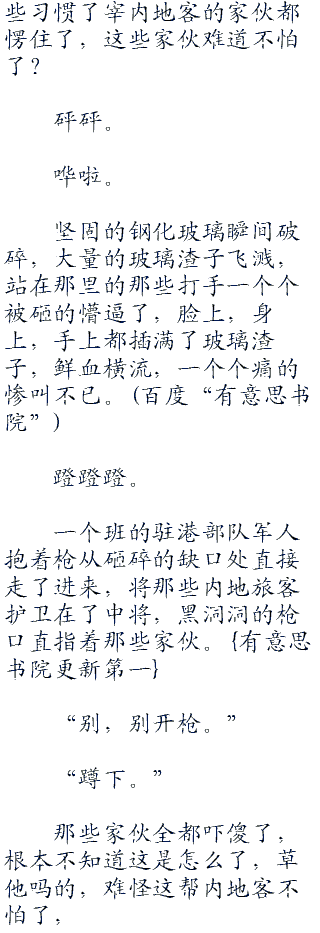 些习惯了宰内地客的家伙都
愣住了，这些家伙难道不怕
了？
砰砰。
哗啦。
坚固的钢化玻璃瞬间破
碎，大量的玻璃渣子飞溅，
站在那里的那些打手一个个
被砸的懵逼了，脸上，身
上，手上都插满了玻璃渣
子，鲜血横流，一个个痛的
惨叫不已。(百度“有意思书
院”)
蹬蹬蹬。
一个班的驻港部队军人
抱着枪从砸碎的缺口处直接
走了进来，将那些内地旅客
护卫在了中将，黑洞洞的枪
口直指着那些家伙。{有意思
书院更新第一}
“别，别开枪。”
“蹲下。”
那些家伙全都吓傻了，
根本不知道这是怎么了，草
他吗的，难怪这帮内地客不
怕了，